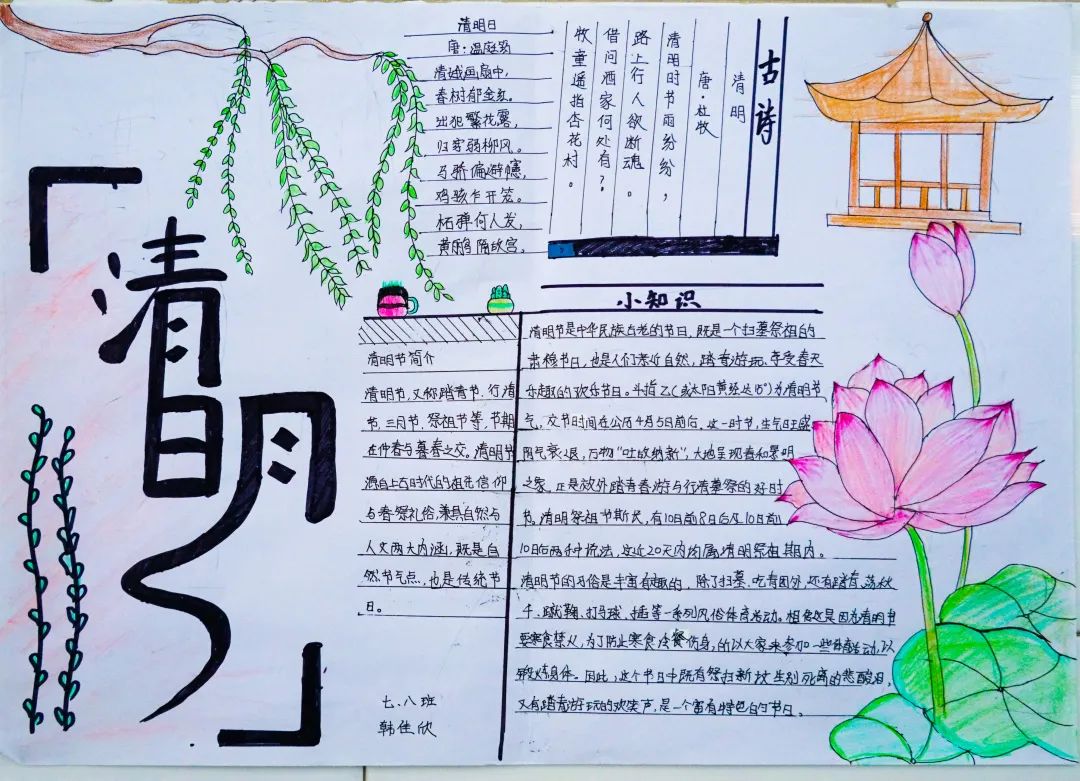 清明
清明日
唐·温庭筠
清娥画扇中,
春树郁金红。
出犯繁花露,
归穿弱柳风。
马骄偏避幰,
鸡骇乍开笼。
柘弹何人发,
黄鹂隔故宫。
古诗
清明
唐·杜牧
清明时节雨纷纷,
路上行人欲断魂。
借问酒家何处有?
牧童遥指杏花村。
清明节简介
清明节,又称踏青节、行清
节、三月节、祭祖节等,节期
在仲春与暮春之交。清明节
源自上古时代的祖先信仰
与春祭礼俗,兼具自然与
人文两大内涵,既是自
然节气点,也是传统节
日。
七、八班
韩佳欣
小知识
清明节是中华民族古老的节日,既是一个扫墓祭祖的
肃穆节日,也是人们亲近自然,踏青游玩、享受春天
乐趣的欢乐节日。斗指乙(或太阳黄经达15°)为清明节
气,交节时间在公历4月5日前后。这一时节,生气旺盛
阴气衰退,万物“吐故纳新”,大地呈现春和景明
之象,正是郊外踏青春游与行清墓祭的好时
节。清明祭祖节期长,有10日前8日后及10日前
10日后两种说法,这近20天内均属清明祭祖期内。
清明节的习俗是丰富有趣的,除了扫墓,吃青团外,还有踏青、荡秋
千、蹴鞠、打马球、插等一系列风俗体育活动。相传这是因为清明节
要寒食禁火,为了防止寒食冷餐伤身,所以大家来参加一些体育活动,以
锻炼身体。因此,这个节日中既有祭扫新坟生别死离的悲酸泪,
又有踏青游玩的欢笑声,是一个富有特色的节日。